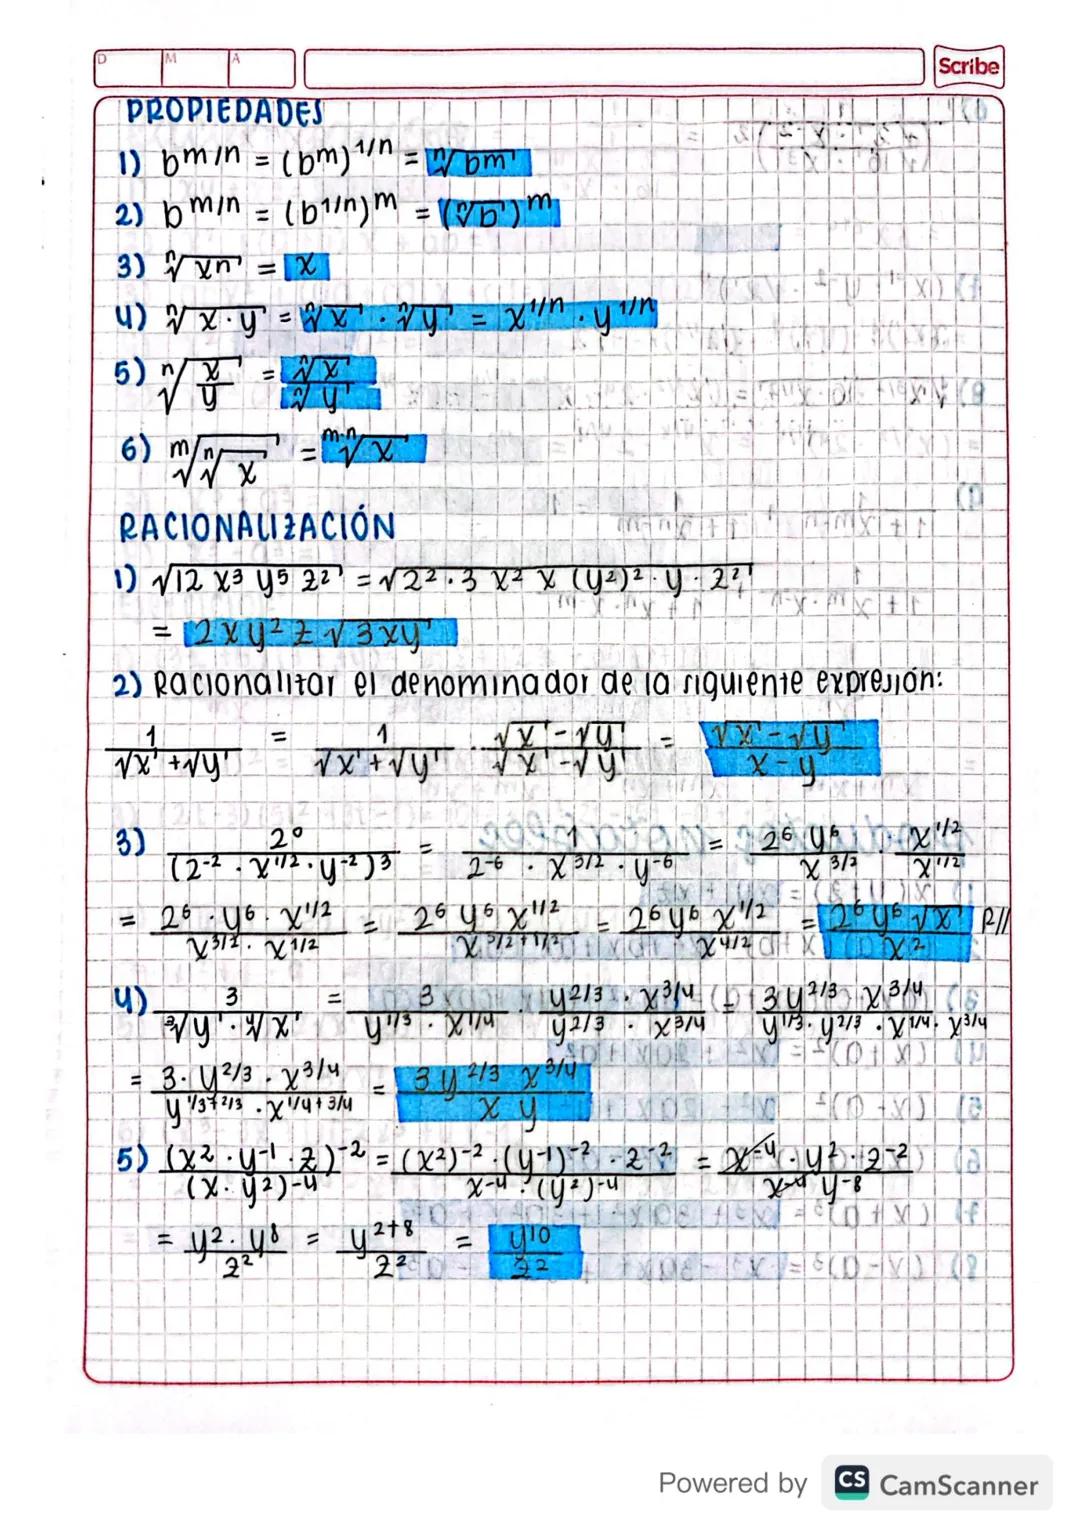 D M A Scribe
PROPIEDADES
1) b^m/n = (b^m)^1/n = ⁿ√b^m
2) b^m/n = (b^1/n)^m = (ⁿ√b)^m
3) ⁿ√x^n = x
4) ⁿ√x·y = ⁿ√x · ⁿ√y = x^1/n · y^1/n
5) ⁿ√(x/y) = ⁿ√x / ⁿ√y
6) ᵐ√ⁿ√x = ᵐ·ⁿ√x
RACIONALIZACIÓN
1) √12 x³ y⁵ z² = √2² · 3 x² x (y²)² · y · z²
= 2xy² z √3xy
2) Racionalizar el denominador de la siguiente expresión:
1/(√x + √y) = 1/(√x + √y) · (√x - √y)/(√x - √y) = (√x - √y)/(x - y)
3) 2⁰/(2^-2 · x^1/2 · y^-2)³ = 1/(2^-6 · x^3/2 · y^-6) = 2⁶ y⁶/x^3/2 · x^1/2/x^1/2
= 2⁶ · y⁶ · x^1/2/(x^3/2 · x^1/2) = 2⁶ y⁶ x^1/2/x^3/2+1/2 = 2⁶ y⁶ x^1/2/x^4/2 = 2⁶ y⁶ √x/x² R//
4) 3/(³√y · ⁴√x) = 3/(y^1/3 · x^1/4) · (y^2/3 · x^3/4)/(y^2/3 · x^3/4) = 3y^2/3 · x^3/4/(y^1/3 · y^2/3 · x^1/4 · x^3/4)
= 3 · y^2/3 · x^3/4/(y^1/3+2/3 · x^1/4+3/4) = 3y^2/3 x^3/4/(x y)
5) (x² · y^-1 · z)^-2/(x · y²)^-4 = (x²)^-2 · (y^-1)^-2 · z^-2/(x^-4 · (y²)^-4) = x^-4 · y² · z^-2/(x^-4 y^-8)
= y² · y⁸/z² = y^2+8/z² = y^10/z²
Powered by CS CamScanner